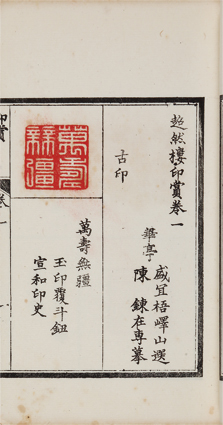 超然樓印賞卷一
華亭
盛宜梧嶧山選
陳鍊在專摹
古印
萬壽無疆
萬壽無疆
玉印覆斗鈕
宣和印史
印賞
卷一